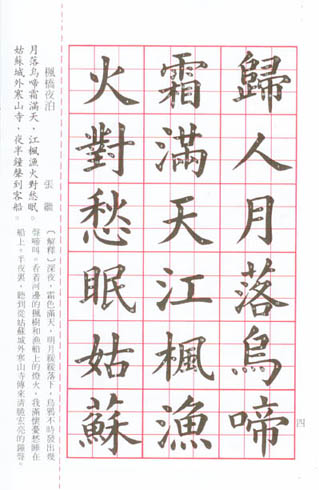 歸人月落烏啼
霜滿天江楓漁
火對愁眠姑蘇
四
楓橋夜泊　張繼
月落烏啼霜滿天，江楓漁火對愁眠。
姑蘇城外寒山寺，夜半鐘聲到客船。
〔解釋〕深夜，霜色滿天，明月緩緩落下，烏鴉不時發出幾
聲啼叫。看著河邊的楓樹和漁船上的燈火，我滿懷憂愁睡在
船上。半夜裏，聽到從姑蘇城外寒山寺傳來清脆宏亮的鐘聲。